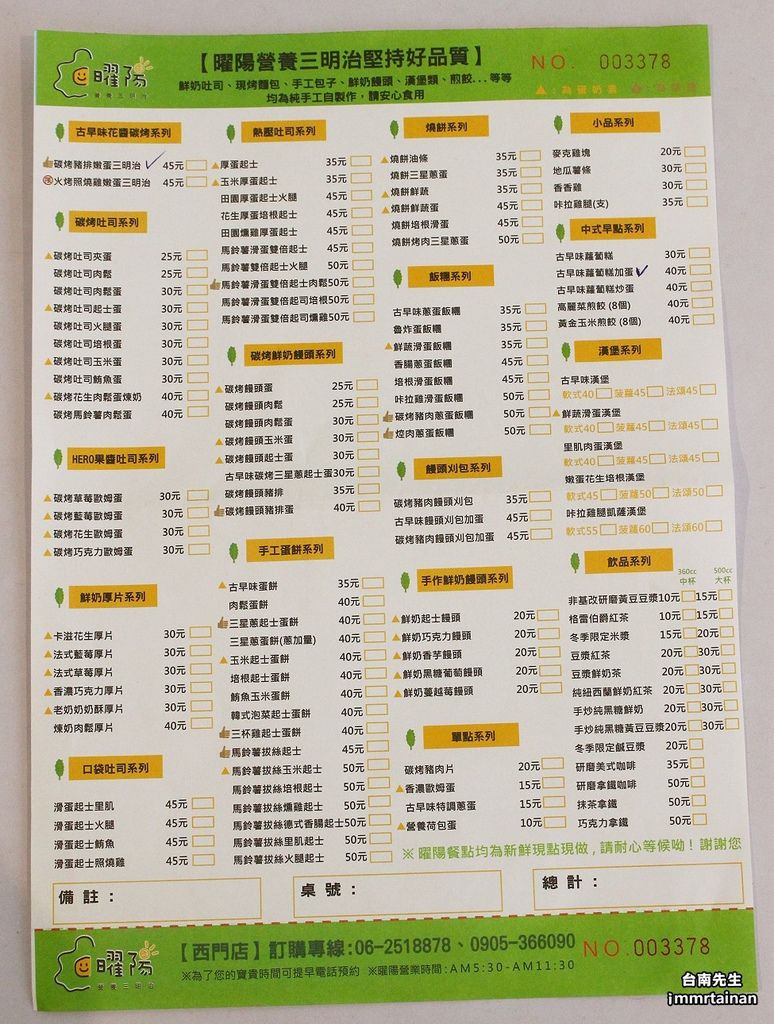 曜陽
營養三明治
【曜陽營養三明治堅持好品質】
鮮奶吐司、現烤麵包、手工包子、鮮奶饅頭、漢堡類、煎餃...等等
均為純手工自製作，請安心食用
NO. 003378
▲：為蛋奶素
古早味花醬碳烤系列
碳烤豬排嫩蛋三明治 45元
火烤照燒雞嫩蛋三明治 45元
碳烤吐司系列
碳烤吐司夾蛋 25元
碳烤吐司肉鬆 25元
碳烤吐司肉鬆蛋 30元
碳烤吐司起士蛋 30元
碳烤吐司火腿蛋 30元
碳烤吐司培根蛋 30元
碳烤吐司玉米蛋 30元
碳烤吐司鮪魚蛋 30元
碳烤花生肉鬆蛋煉奶 40元
碳烤馬鈴薯肉鬆蛋 40元
HERO果醬吐司系列
碳烤草莓歐姆蛋 30元
碳烤藍莓歐姆蛋 30元
碳烤花生歐姆蛋 30元
碳烤巧克力歐姆蛋 30元
鮮奶厚片系列
卡滋花生厚片 30元
法式藍莓厚片 30元
法式草莓厚片 30元
香濃巧克力厚片 30元
老奶奶奶酥厚片 30元
煉奶肉鬆厚片 40元
口袋吐司系列
滑蛋起士里肌 45元
滑蛋起士火腿 45元
滑蛋起士鮪魚 45元
滑蛋起士照燒雞 45元
熱壓吐司系列
厚蛋起士 35元
玉米厚蛋起士 35元
田園厚蛋起士火腿 40元
花生厚蛋培根起士 40元
田園燻雞厚蛋起士 40元
馬鈴薯滑蛋雙倍起士 45元
馬鈴薯雙倍起士火腿 50元
馬鈴薯滑蛋雙倍起士肉鬆50元
馬鈴薯滑蛋雙倍起司培根50元
馬鈴薯滑蛋雙倍起司燻雞50元
碳烤鮮奶饅頭系列
碳烤饅頭蛋 25元
碳烤饅頭肉鬆 25元
碳烤饅頭肉鬆蛋 30元
碳烤饅頭玉米蛋 30元
碳烤饅頭起士蛋 30元
古早味碳烤三星蔥起士蛋30元
碳烤饅頭豬排 35元
碳烤饅頭豬排蛋 40元
手工蛋餅系列
古早味蛋餅 35元
肉鬆蛋餅 40元
三星蔥起士蛋餅 40元
三星蔥蛋餅(蔥加量) 40元
玉米起士蛋餅 40元
培根起士蛋餅 40元
鮪魚玉米蛋餅 40元
韓式泡菜起士蛋餅 40元
三杯雞起士蛋餅 40元
馬鈴薯拔絲起士 45元
馬鈴薯拔絲玉米起士 50元
馬鈴薯拔絲培根起士 50元
馬鈴薯拔絲燻雞起士 50元
馬鈴薯拔絲德式香腸起士50元
馬鈴薯拔絲里肌起士 50元
馬鈴薯拔絲火腿起士 50元
燒餅系列
燒餅油條 35元
燒餅三星蔥蛋 35元
燒餅鮮蔬 35元
燒餅鮮蔬蛋 40元
燒餅培根滑蛋 45元
燒餅烤肉三星蔥蛋 50元
飯糰系列
古早味蔥蛋飯糰 35元
魯炸蛋飯糰 35元
鮮蔬滑蛋飯糰 35元
香腸蔥蛋飯糰 45元
培根滑蛋飯糰 45元
咔拉雞滑蛋飯糰 50元
碳烤豬肉蔥蛋飯糰 50元
焢肉蔥蛋飯糰 50元
饅頭刈包系列
碳烤豬肉饅頭刈包 35元
古早味饅頭刈包加蛋 45元
碳烤豬肉饅頭刈包加蛋 45元
手作鮮奶饅頭系列
鮮奶起士饅頭 20元
鮮奶巧克力饅頭 20元
鮮奶香芋饅頭 20元
鮮奶黑糖葡萄饅頭 20元
鮮奶蔓越莓饅頭 20元
單點系列
碳烤豬肉片 20元
香濃歐姆蛋 15元
古早味特調蔥蛋 15元
營養荷包蛋 10元
小品系列
麥克雞塊 20元
地瓜薯條 30元
香香雞 30元
咔拉雞腿(支) 35元
中式早點系列
古早味蘿蔔糕 30元
古早味蘿蔔糕加蛋 40元
古早味蘿蔔糕炒蛋 40元
高麗菜煎餃(8個) 40元
黃金玉米煎餃(8個) 40元
漢堡系列
古早味漢堡
軟式40 菠蘿45 法頌45
鮮蔬滑蛋漢堡
軟式40 菠蘿45 法頌45
里肌肉蛋漢堡
軟式40 菠蘿45 法頌45
嫩蛋花生培根漢堡
軟式45 菠蘿50 法頌50
咔拉雞腿凱薩漢堡
軟式55 菠蘿60 法頌60
飲品系列
360cc 中杯 500cc 大杯
非基改研磨黃豆豆漿10元 15元
格雷伯爵紅茶 10元 15元
冬季限定米漿 15元 20元
豆漿紅茶 20元 30元
豆漿鮮奶茶 20元 30元
純紐西蘭鮮奶紅茶 20元 30元
手炒純黑糖鮮奶 20元 30元
手炒純黑糖黃豆豆漿20元 30元
冬季限定鹹豆漿 20元
研磨美式咖啡 35元
研磨拿鐵咖啡 50元
抹茶拿鐵 50元
巧克力拿鐵 50元
※曜陽餐點均為新鮮現點現做，請耐心等候呦！謝謝您
備註：
桌號：
總計：
曜陽
營養三明治
【西門店】訂購專線:06-2518878、0905-366090
NO.003378
※為了您的寶貴時間可提早電話預約 ※曜陽營業時間:AM5:30-AM11:30
台南先生
jmmrtainan